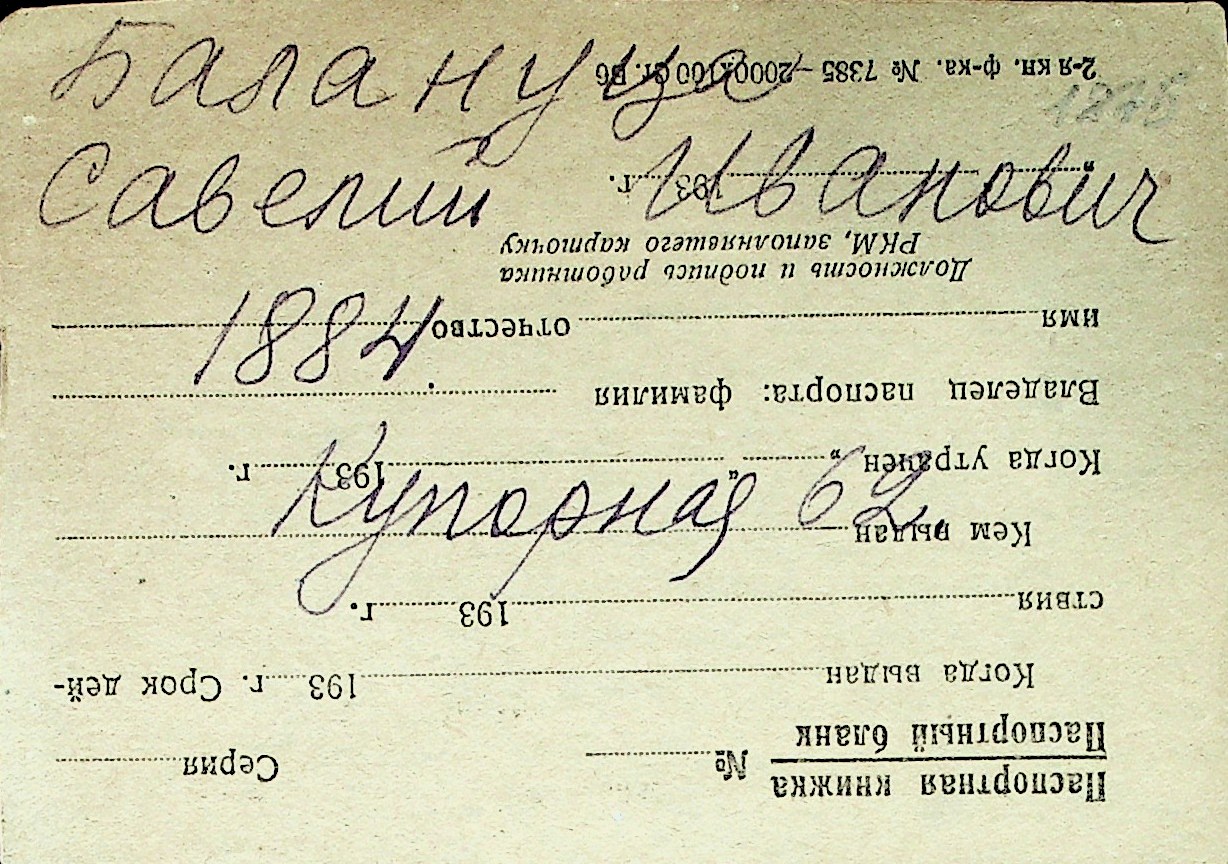 Балануца
Савелий Иванович
1884.
Купорная 62.
Паспортная книжка № Серия
Паспортный бланк
Когда выдан 193 г. Срок дей-
ствия 193 г.
Кем выдан
Когда утрачен „ “ 193 г.
Владелец паспорта: фамилия
имя отчество
Должность и подпись работника
РКМ, заполнявшего карточку
„ 193 г.
2-я кн. ф-ка. № 7385 — 2000×100 ст. В6